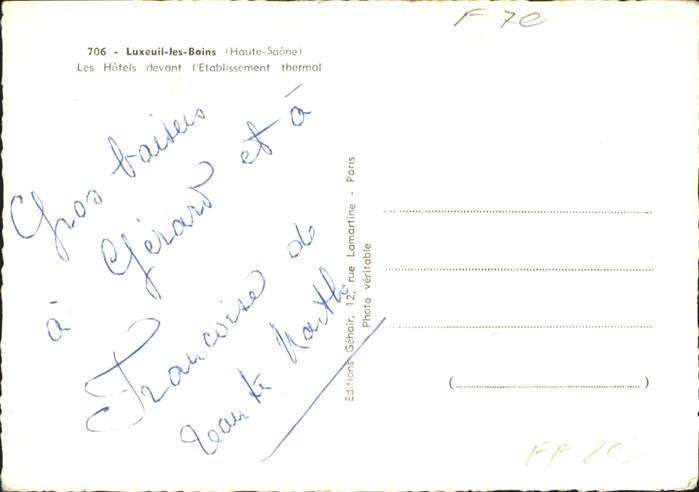 F 70
706 - Luxeuil-les-Bains (Haute-Saône)
Les Hôtels devant l'Etablissement thermal
Gros baisers
à Gérard et à
Françoise de
tante Marthe
Editions Géhair, 12, rue Lamartine - Paris
Photo véritable
(        )
FF 202